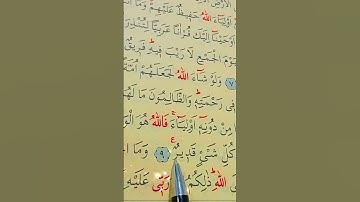 اَوْلِيَٓاءَ اللّٰهُ حَفٖيظٌ عَلَيْهِمْ وَمَٓا
اَوْحَيْنَٓا اِلَيْكَ قُرْاٰنًا عَرَبِيًّا لِتُنْذِرَ
يَوْمَ الْجَمْعِ لَا رَيْبَ فٖيهِ فَرٖيقٌ
٧ وَلَوْ شَٓاءَ اللّٰهُ لَجَعَلَهُمْ اُمَّةً
فٖى رَحْمَتِهٖ وَالظَّالِمُونَ مَا لَهُمْ
مِنْ دُونِهٖٓ اَوْلِيَٓاءَ فَاللّٰهُ هُوَ
كُلِّ شَىْءٍ قَدٖيرٌ ٩ وَمَا
اللّٰهِ ذٰلِكُمُ رَبّٖى عَلَيْهِ